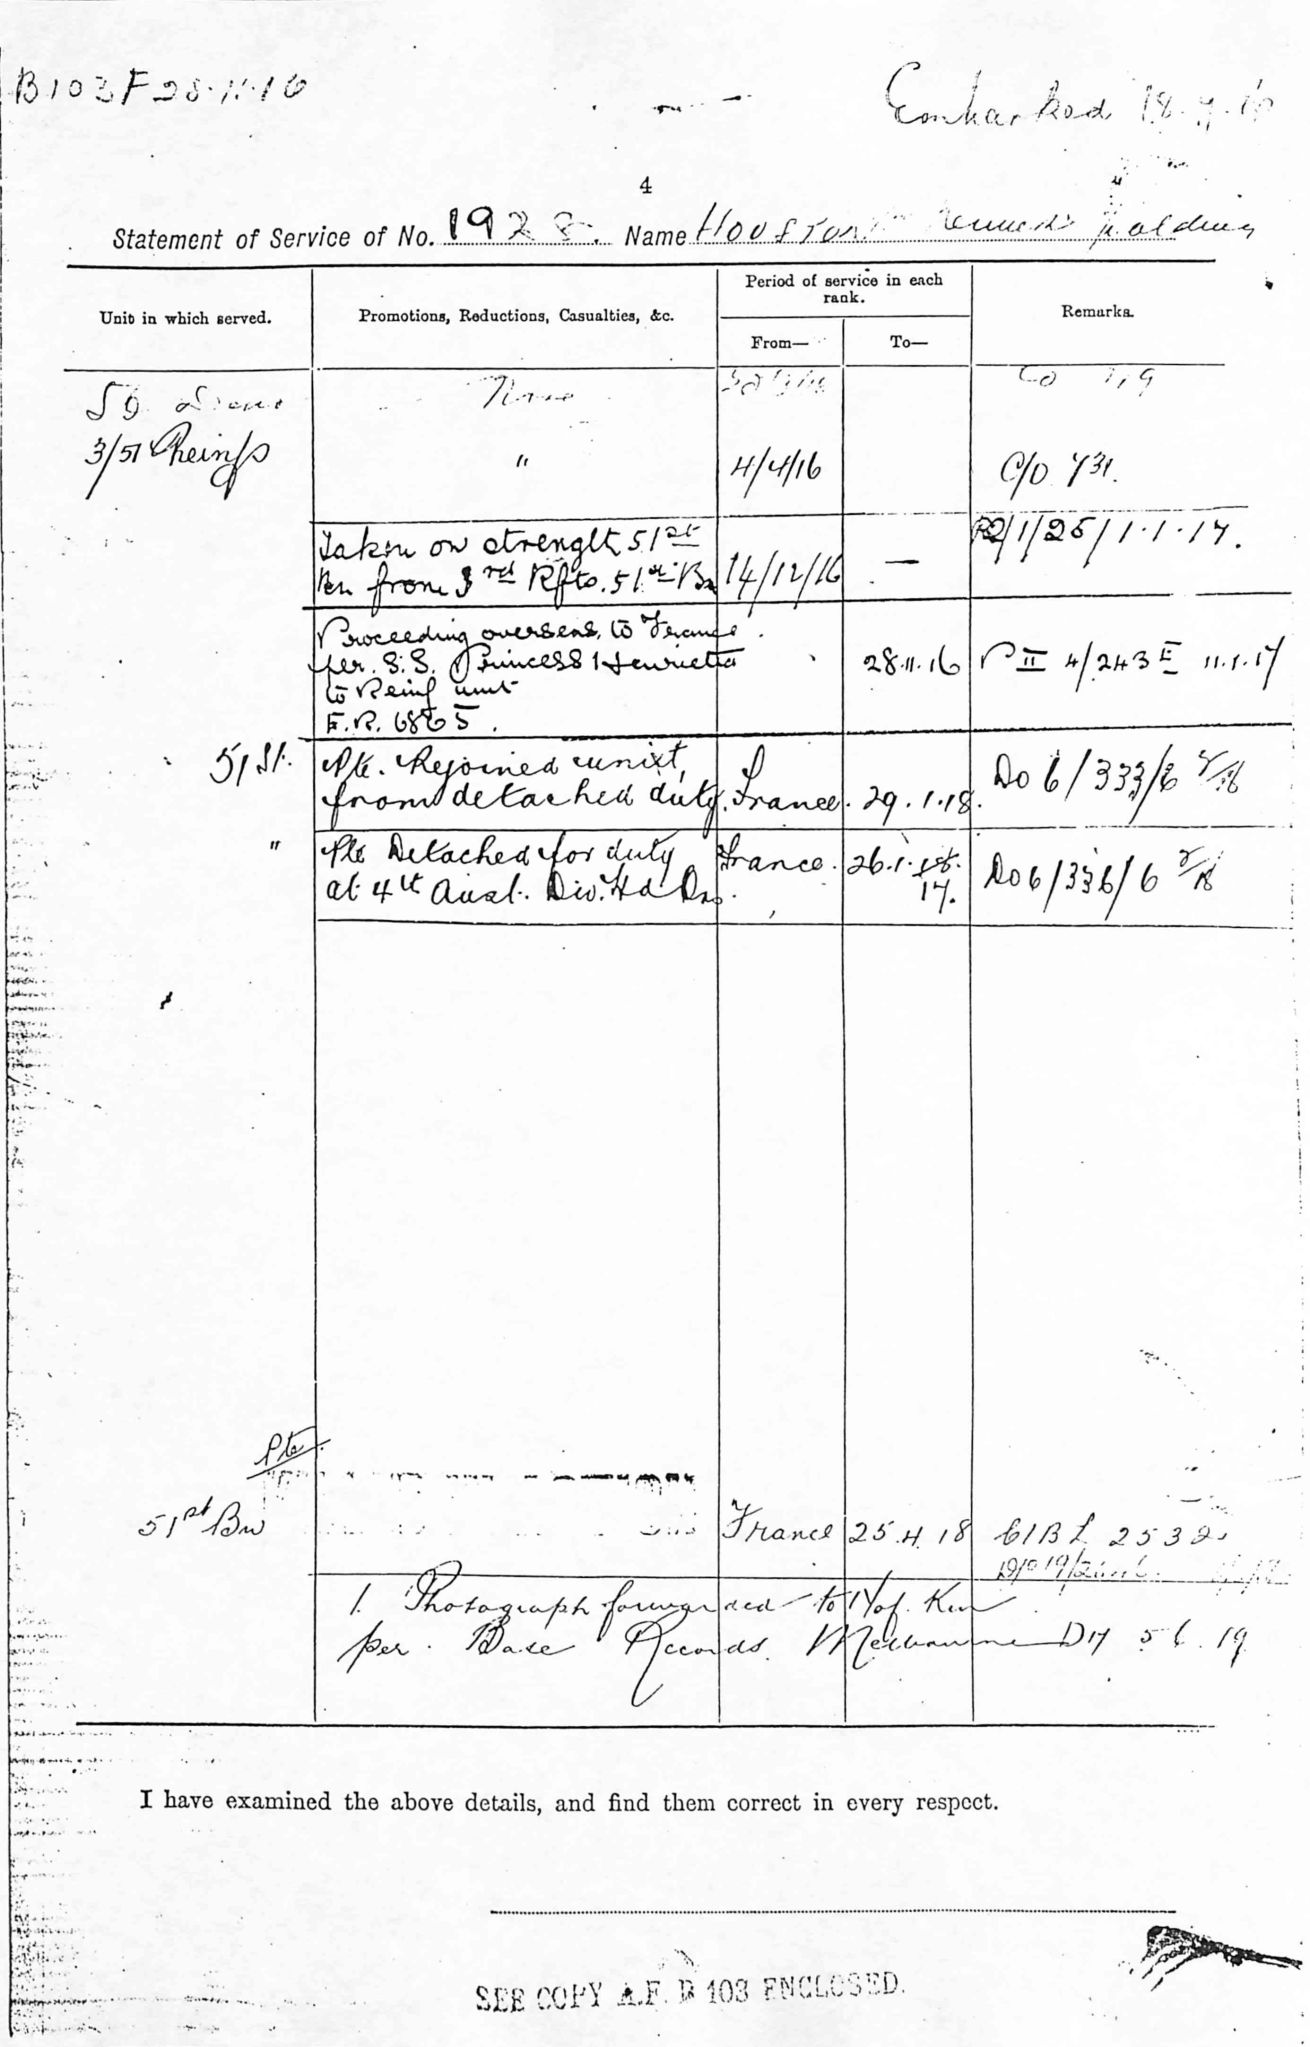 B103F 28.11.16
Embarked 18.7.16
4
Statement of Service of No. 1928. Name Houston
Unit in which served.
Promotions, Reductions, Casualties, &c.
Period of service in each rank.
Remarks.
From—
To—
None
3/51 Reinfs " 4/4/16 C/O 731.
Taken on strength 51st 2/1/25/1.1.17.
Bn from 3rd Rfts. 51st Bn 14/12/16 —
Proceeding overseas to France
per S.S. Princess Henrietta 28.11.16 P II 4/243 E 11.1.17
to Reinf unit
E.R. 6865.
51st. Pte. Rejoined unit, Do 6/333/6
from detached duty. France. 29.1.18.
" Pte Detached for duty France. 26.1.18. Do 6/336/6
at 4th Aust. Div. Hd Qrs. 17.
Pte
51st Bn France 25.4.18 C/BL 2532
1. Photograph forwarded to N of Kin
per Base Records Melbourne DH 5 6. 19
I have examined the above details, and find them correct in every respect.
SEE COPY A.F. B 103 ENCLOSED.